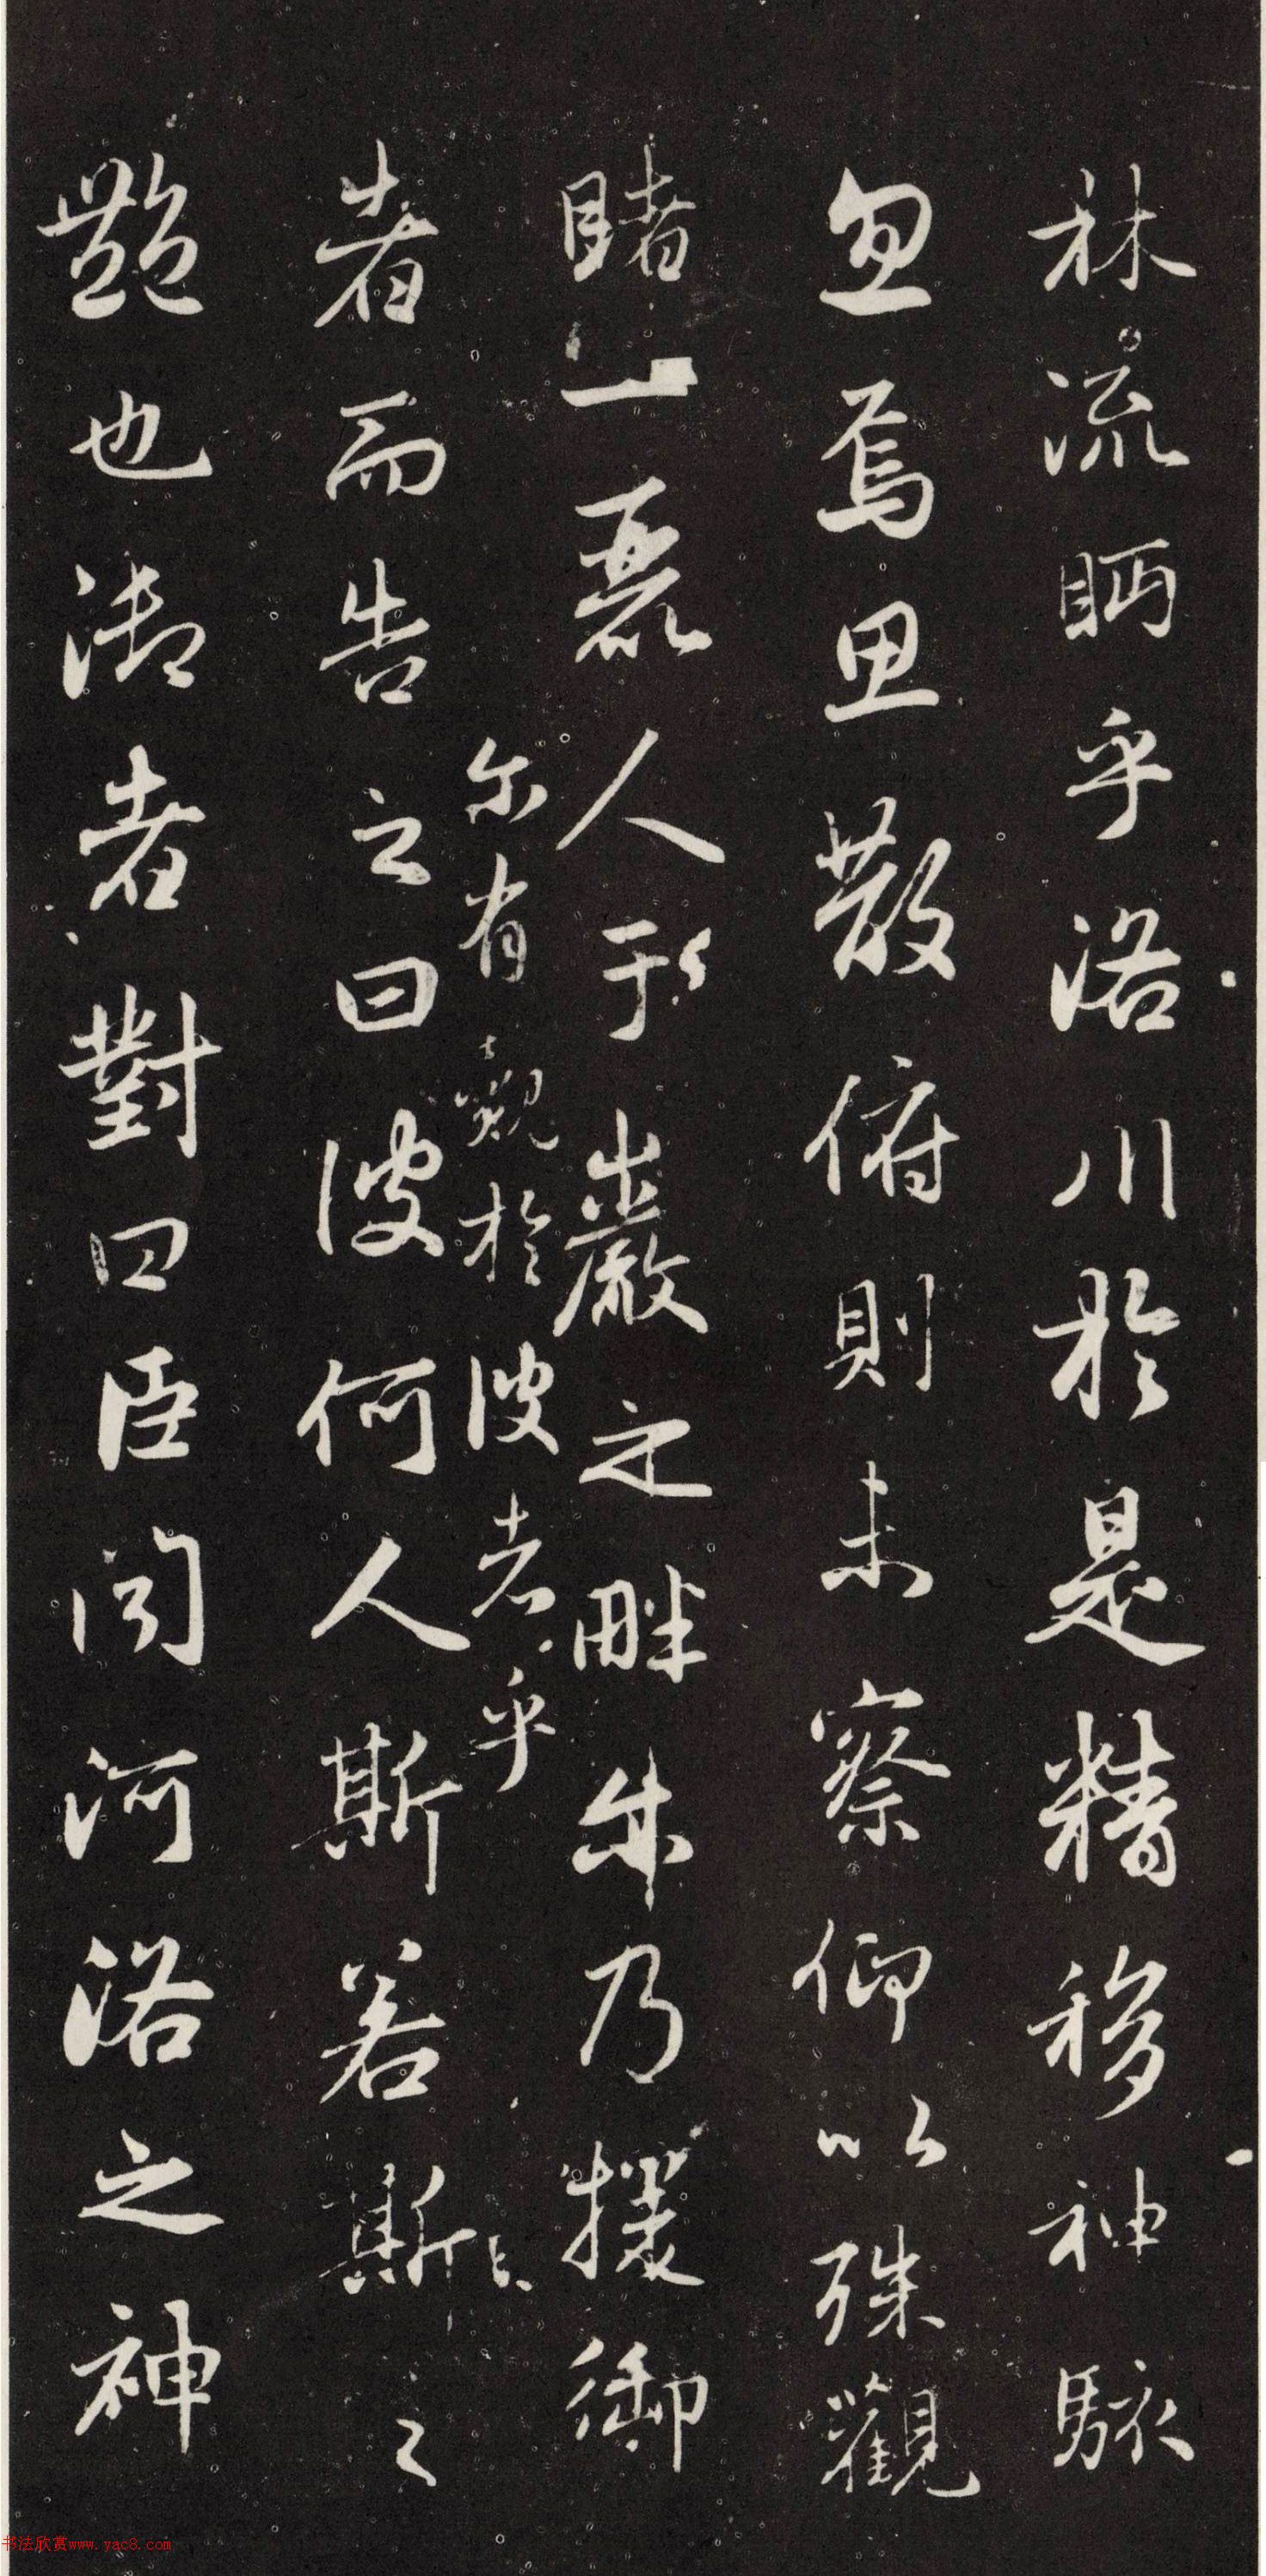 林流眄乎洛川於是精移神駭
忽焉思散俯則未察仰以殊觀
睹一麗人于巖之畔乃援御
尓有覿於彼者乎
者而告之曰彼何人斯若斯之
豔也御者對曰臣聞河洛之神
书法欣赏www.yac8.com